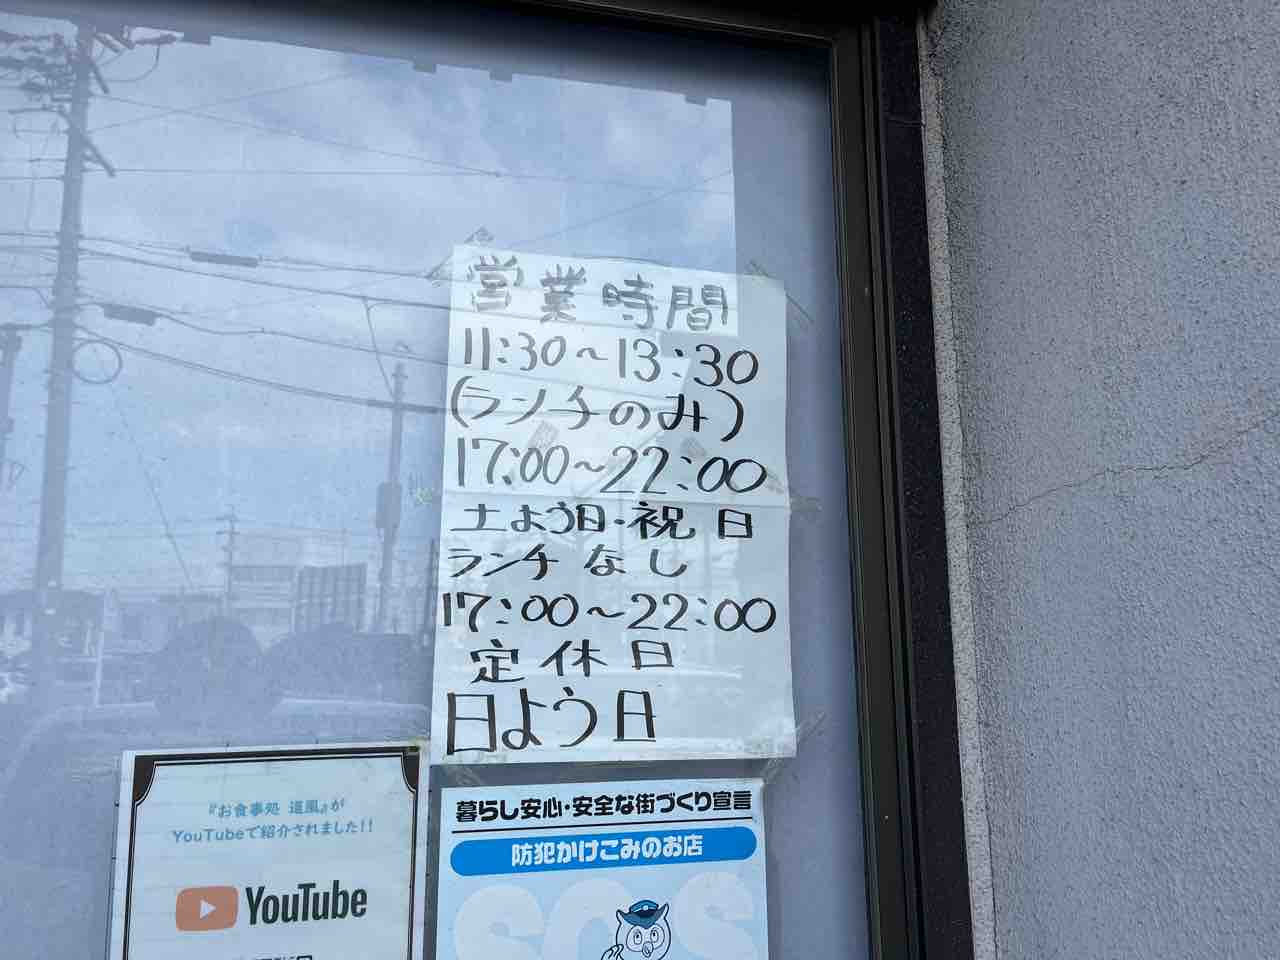 営業時間
11:30～13:30
(ランチのみ)
17:00～22:00
土よう日・祝日
ランチなし
17:00～22:00
定休日
日よう日
『お食事処 道風』が
YouTubeで紹介されました!!
YouTube
暮らし安心・安全な街づくり宣言
防犯かけこみのお店
SOS